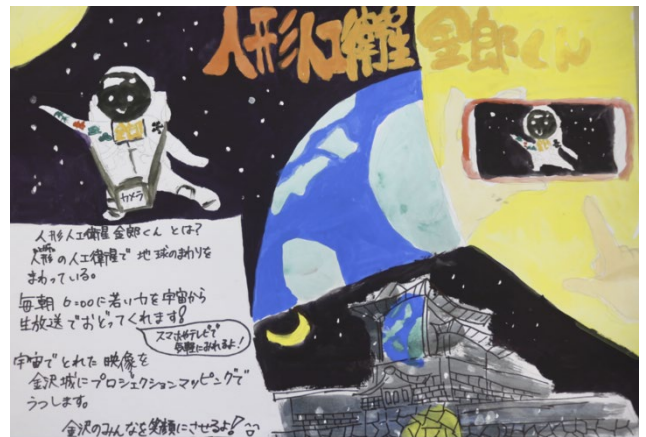 人形人工衛星 金郎くん
カメラ
人形人工衛星金郎くん とは?
人形の人工衛星で 地球のまわりを
まわっている。
毎朝 6:00に若い力を宇宙から
生放送でおどってくれます!
スマホやテレビで
気軽にみれるよ!
宇宙でとれた映像を
金沢城にプロジェクションマッピングで
うつします。
金沢のみんなを笑顔にさせるよ!